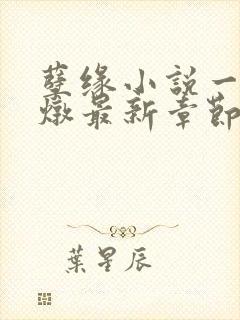 孽缘小說一
燉最新章節
葉星辰